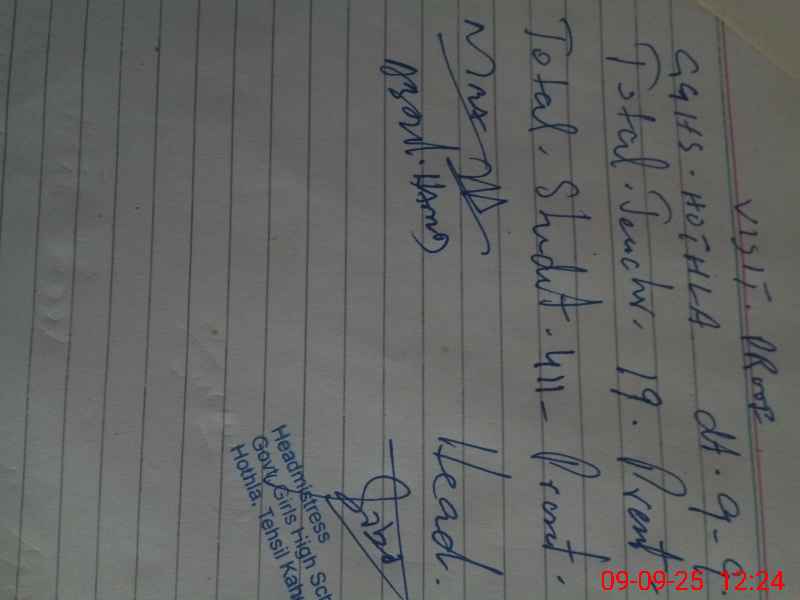 VISIT. PROOF
GGHS. HOTHLA dt. 9-9.
Total. Teachr. 19. Prent
Total. Studnt. 411- Prent.
Head.
Headmistress
Govt, Girls High Sch
Hothla, Tehsil Kah
09-09-25 12:24